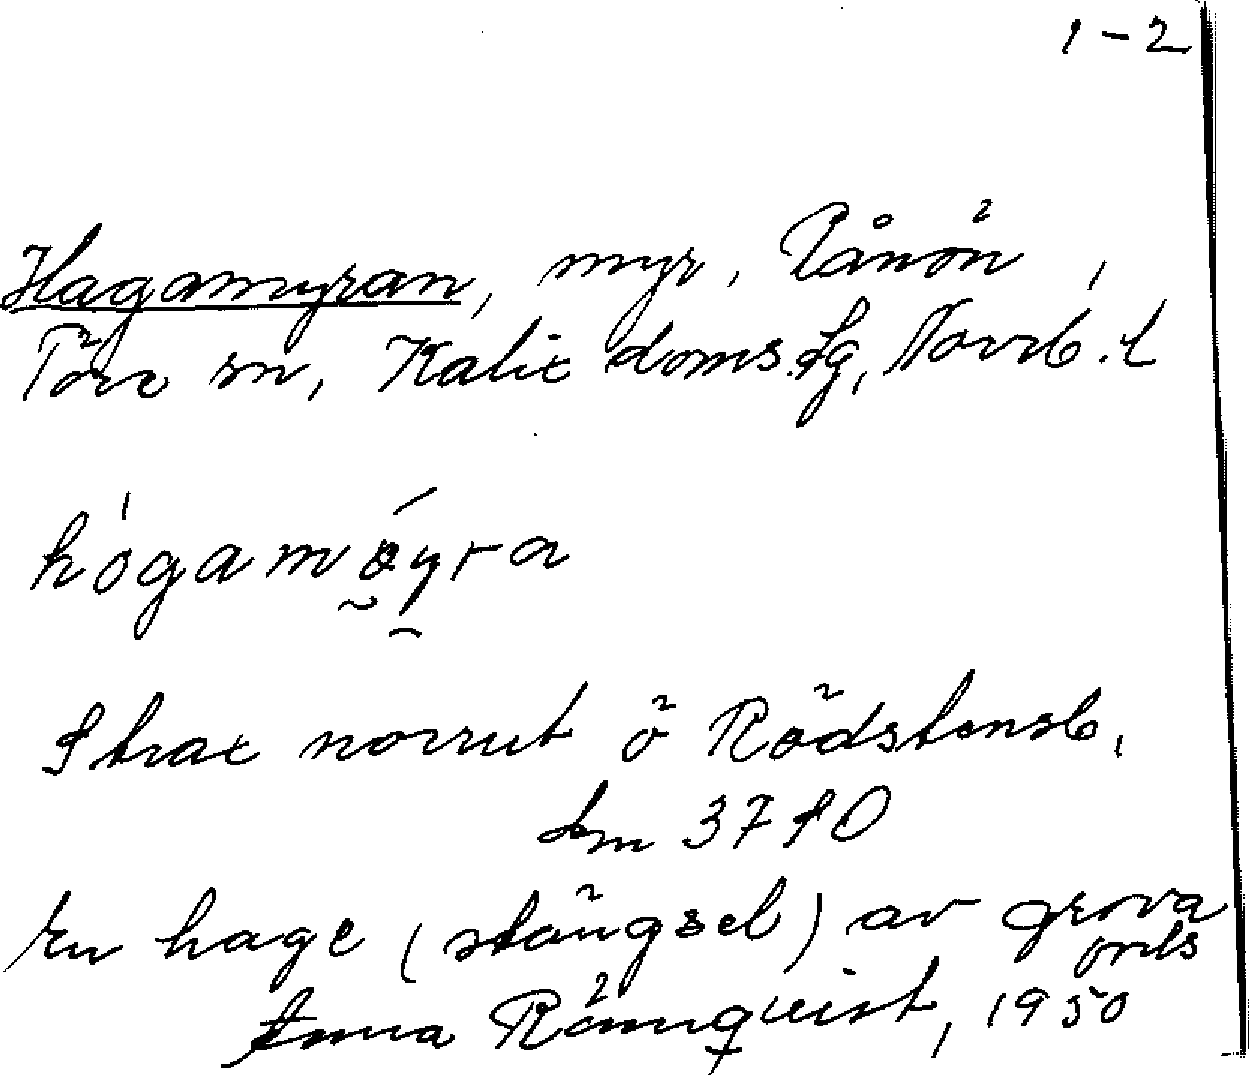 1-2
Hagamyran, myr, Rånön,
Töre sn, Kalix doms.lg, Norrb. l
hógamöyra
Strax norrut ö Rödstensb.
km 3710
En hage (stängsel) av grova
Anna Rönnqvist, 1950